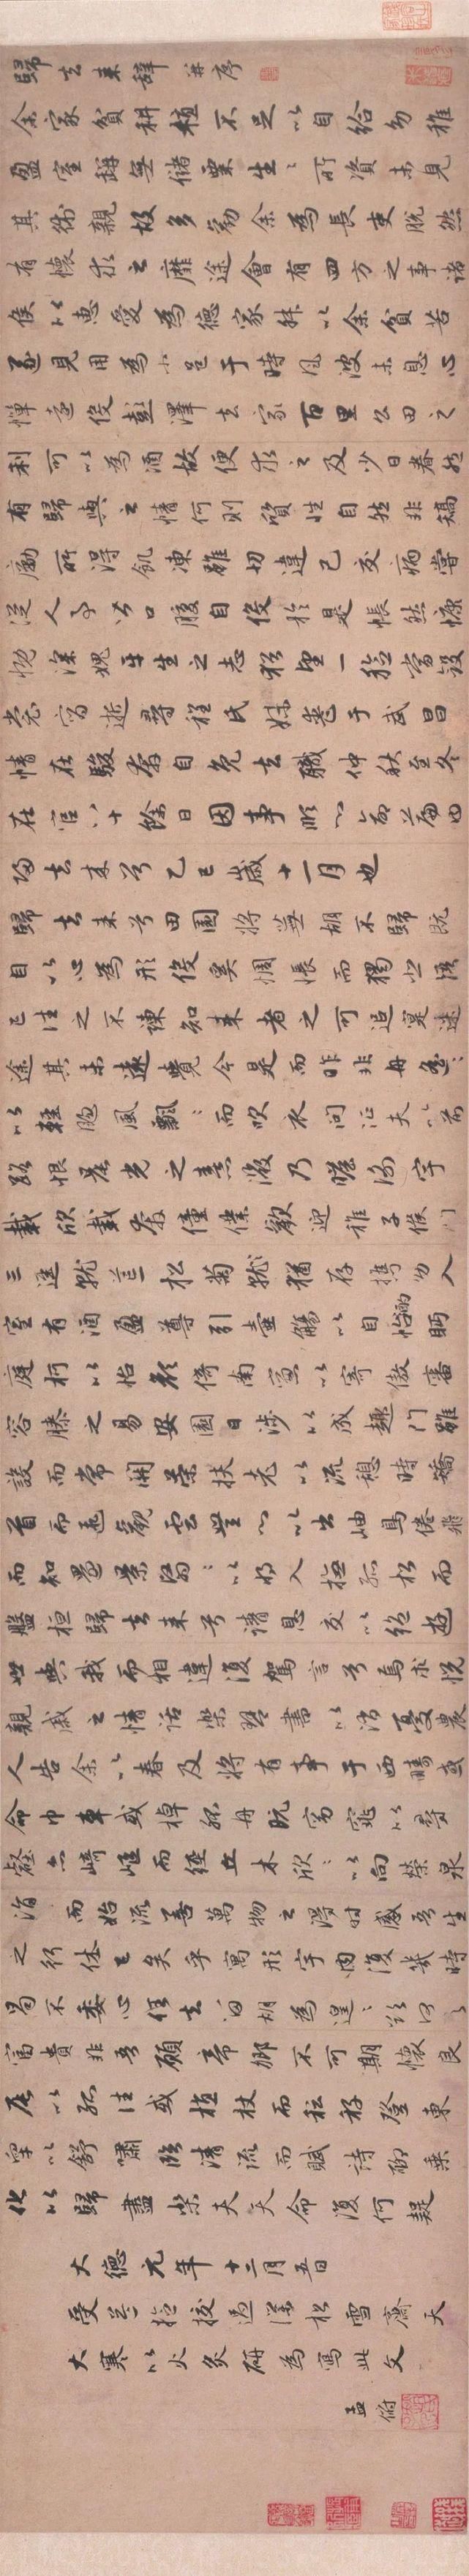 歸去來辭并序
余家貧耕植不足以自給幼稚
盈室缾無儲粟生〻所資未見
其術親故多勸余為長吏脫然
有懷求之靡途會有四方之事諸
侯以惠愛為德家叔以余貧苦
遂見用為小邑于時風波未息心
憚遠役彭澤去家百里公田之
利可以為酒故便求之及少日眷然
有歸與之情何則質性自然非矯
勵所得飢凍雖切違己交病嘗
從人事皆口腹自役於是悵然慷
慨深媿平生之志猶望一稔當斂
裳宵逝尋程氏妹喪于武昌
情在駿奔自免去職仲秋至冬
在官八十餘日因事順心命篇曰
歸去來兮乙巳歲十一月也
歸去來兮田園將蕪胡不歸既
自以心為形役奚惆悵而獨悲悟
已往之不諫知來者之可追寔迷
途其未遠覺今是而昨非舟遙〻
以輕颺風飄〻而吹衣問征夫以前
路恨晨光之熹微乃瞻衡宇
載欣載奔僮僕歡迎稚子候門
三逕就荒松菊就猶存携幼入
室有酒盈尊引壺觴以自怡眄
庭柯以怡顏倚南窗以寄傲審
容膝之易安園日涉以成趣門雖
設而常關策扶老以流憩時矯
首而遐觀雲無心以出岫鳥倦飛
而知還景翳〻以將入撫孤松而
盤桓歸去來兮請息交以絕遊
世與我而相違復駕言兮焉求悅
親戚之情話樂琴書以消憂農
人告余以春及將有事于西疇或
命巾車或棹孤舟既窈窕以尋
壑亦崎嶇而經丘木欣〻以向榮泉
涓〻而始流善萬物之得時感吾生
之行休已矣乎寓形宇內復幾時
曷不委心任去留胡為遑〻欲何之
富貴非吾願帝鄉不可期懷良
辰以孤往或植杖而耘耔登東
皋以舒嘯臨清流而賦詩聊乘
化以歸盡樂夫天命復何疑
大德元年十二月五日
受益檢校過僕松雪齋天
大寒以火炙研為寫此文
孟頫